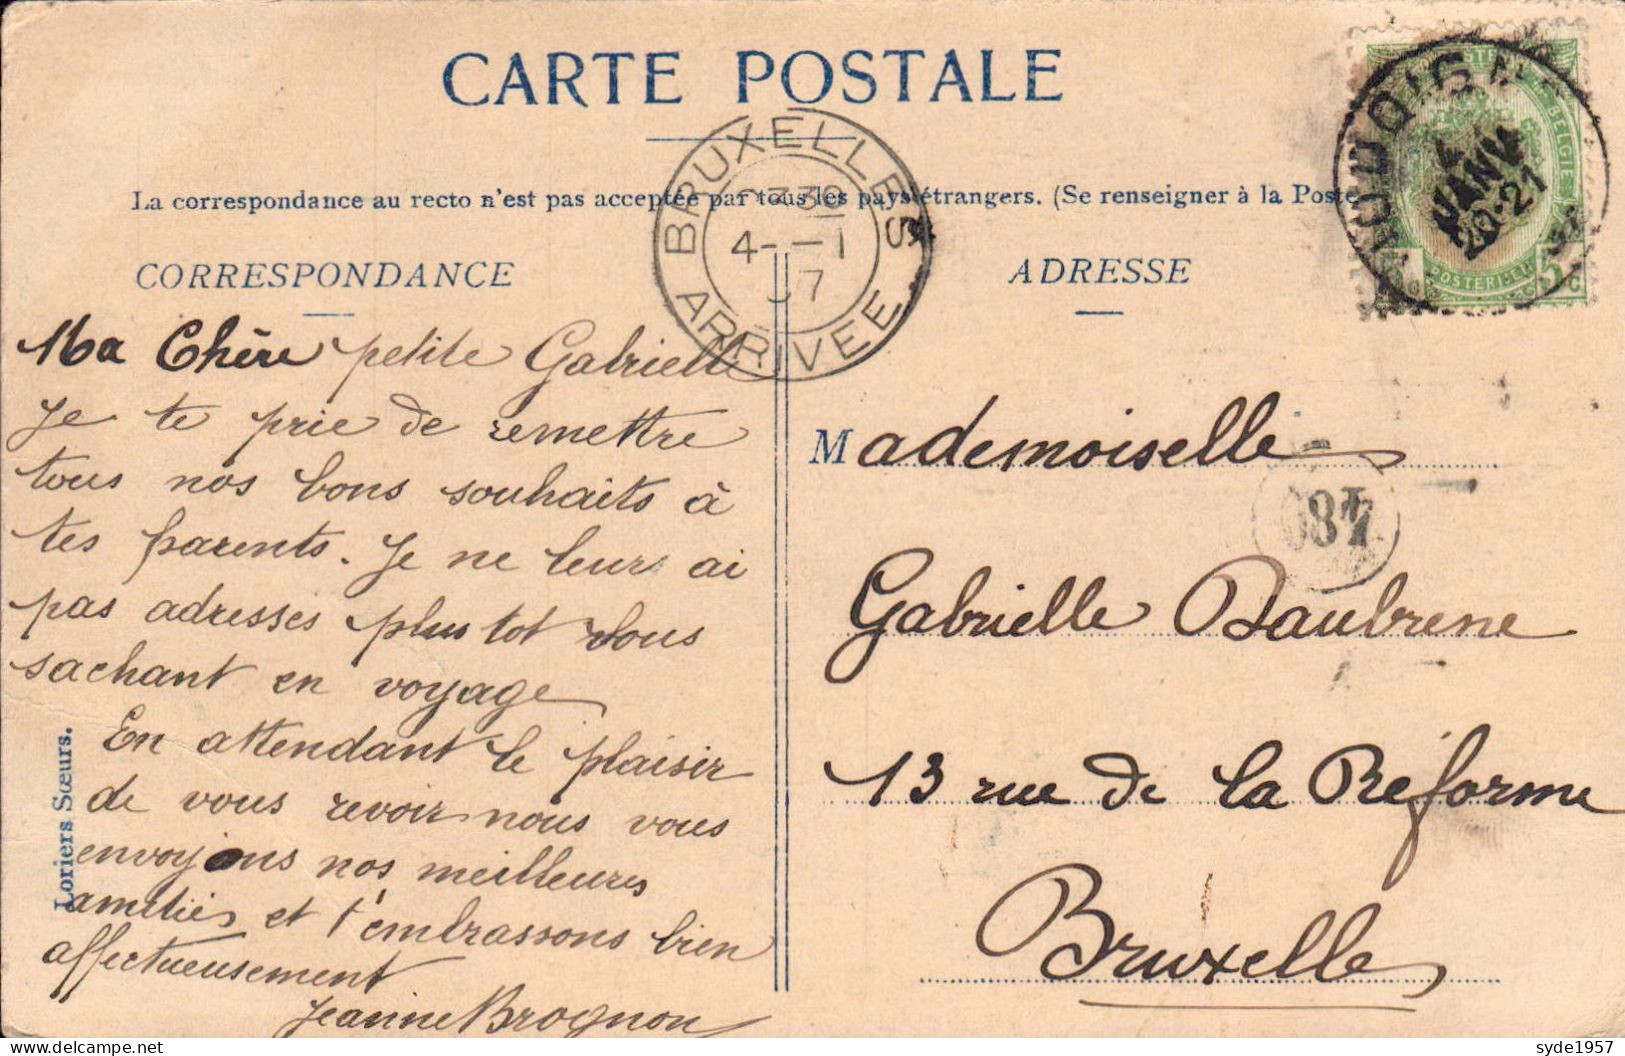 CARTE POSTALE
La correspondance au recto n'est pas acceptée par tous les pays étrangers. (Se renseigner à la Poste
CORRESPONDANCE
Ma Chère petite Gabrielle
Je te prie de remettre
tous nos bons souhaits à
tes parents. Je ne leurs ai
pas adresses plus tot vous
sachant en voyage
En attendant le plaisir
de vous revoir nous vous
envoyons nos meilleures
amitiés et t'embrassons bien
affectueusement
Jeanne Brognon
Loriers Sœurs.
BRUXELLES
4--1
07
ARRIVEE
ADRESSE
JANV
20-21
5
Mademoiselle
Gabrielle Daubrene
13 rue de la Réforme
Bruxelle
syde1957